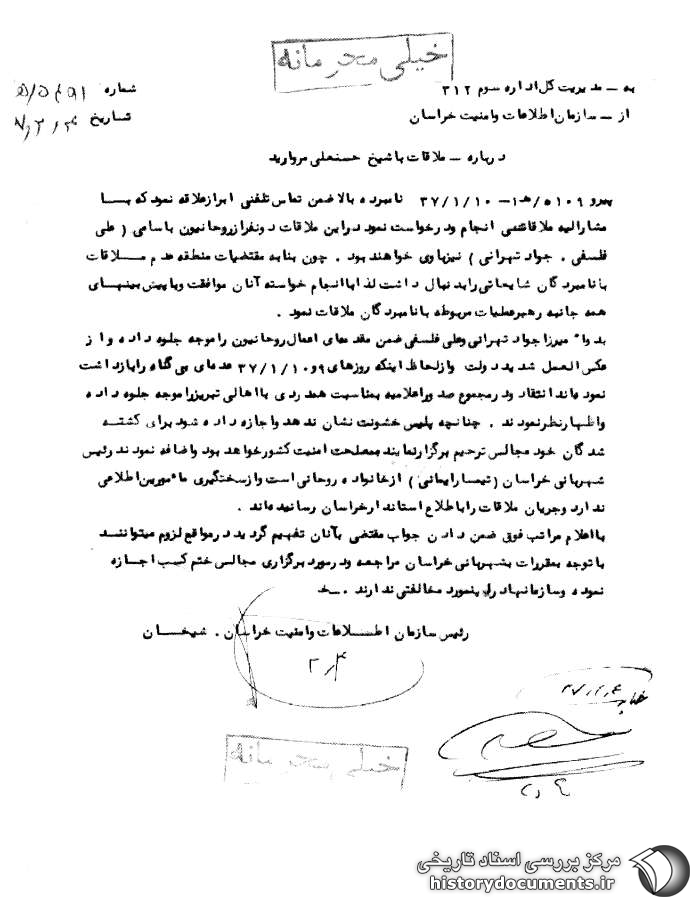 خیلی محرمانه
به - مدیریت کل اداره سوم ۳۱۲
شماره
از - سازمان اطلاعات و امنیت خراسان
تاریخ
درباره - ملاقات با شیخ حسنعلی مروارید
نامبرده بالا ضمن تماس تلفنی ابراز علاقه نمود که با
مشارالیه ملاقاتی انجام و درخواست نمود در این ملاقات دو نفر از روحانیون باسامی ( علی
فلسفی . جواد تهرانی ) نیز با وی خواهند بود . چون بنا به مقتضیات منطقه عدم ملاقات
با نامبردگان شایعاتی را بدنبال داشت لذا با انجام خواسته آنان موافقت و با پیش بینیهای
همه جانبه رهبر عملیات مربوطه با نامبردگان ملاقات نمود .
بدوا" میرزا جواد تهرانی و علی فلسفی ضمن مقدمه‌ای اعمال روحانیون را موجه جلوه داده و از
عکس العمل شدید دولت و از لحاظ اینکه روزهای ۹ و ۳۷/۱/۱۰ عده‌ای بی گناه را بازداشت
نموده‌اند انتقاد و در مجموع صدور اعلامیه بمناسبت همدردی با اهالی تبریز را موجه جلوه داده
و اظهار نظر نمودند . چنانچه پلیس خشونت نشان ندهد و اجازه داده شود برای کشته
شدگان خود مجالس ترحیم برگزار نمایند بمصلحت امنیت کشور خواهد بود و اضافه نمودند رئیس
شهربانی خراسان ( تیمسار ایمانی ) از خانواده روحانی است و از سختگیری مأمورین اطلاعی
ندارد و جریان ملاقات را با طلاع استاندار خراسان رسانیده‌اند .
با اعلام مراتب فوق ضمن دادن جواب مقتضی بآنان تفهیم گردید در مواقع لزوم میتوانند
با توجه بمقررات بشهربانی خراسان مراجعه و در مورد برگزاری مجالس ختم کسب اجازه
نموده و سازمانها در اینمورد مخالفتی ندارند .
رئیس سازمان اطلاعات و امنیت خراسان . شیخان
۲٫۴
۳۷٫۲٫۴
خیلی محرمانه
مرکز بررسی اسناد تاریخی
historydocuments.ir